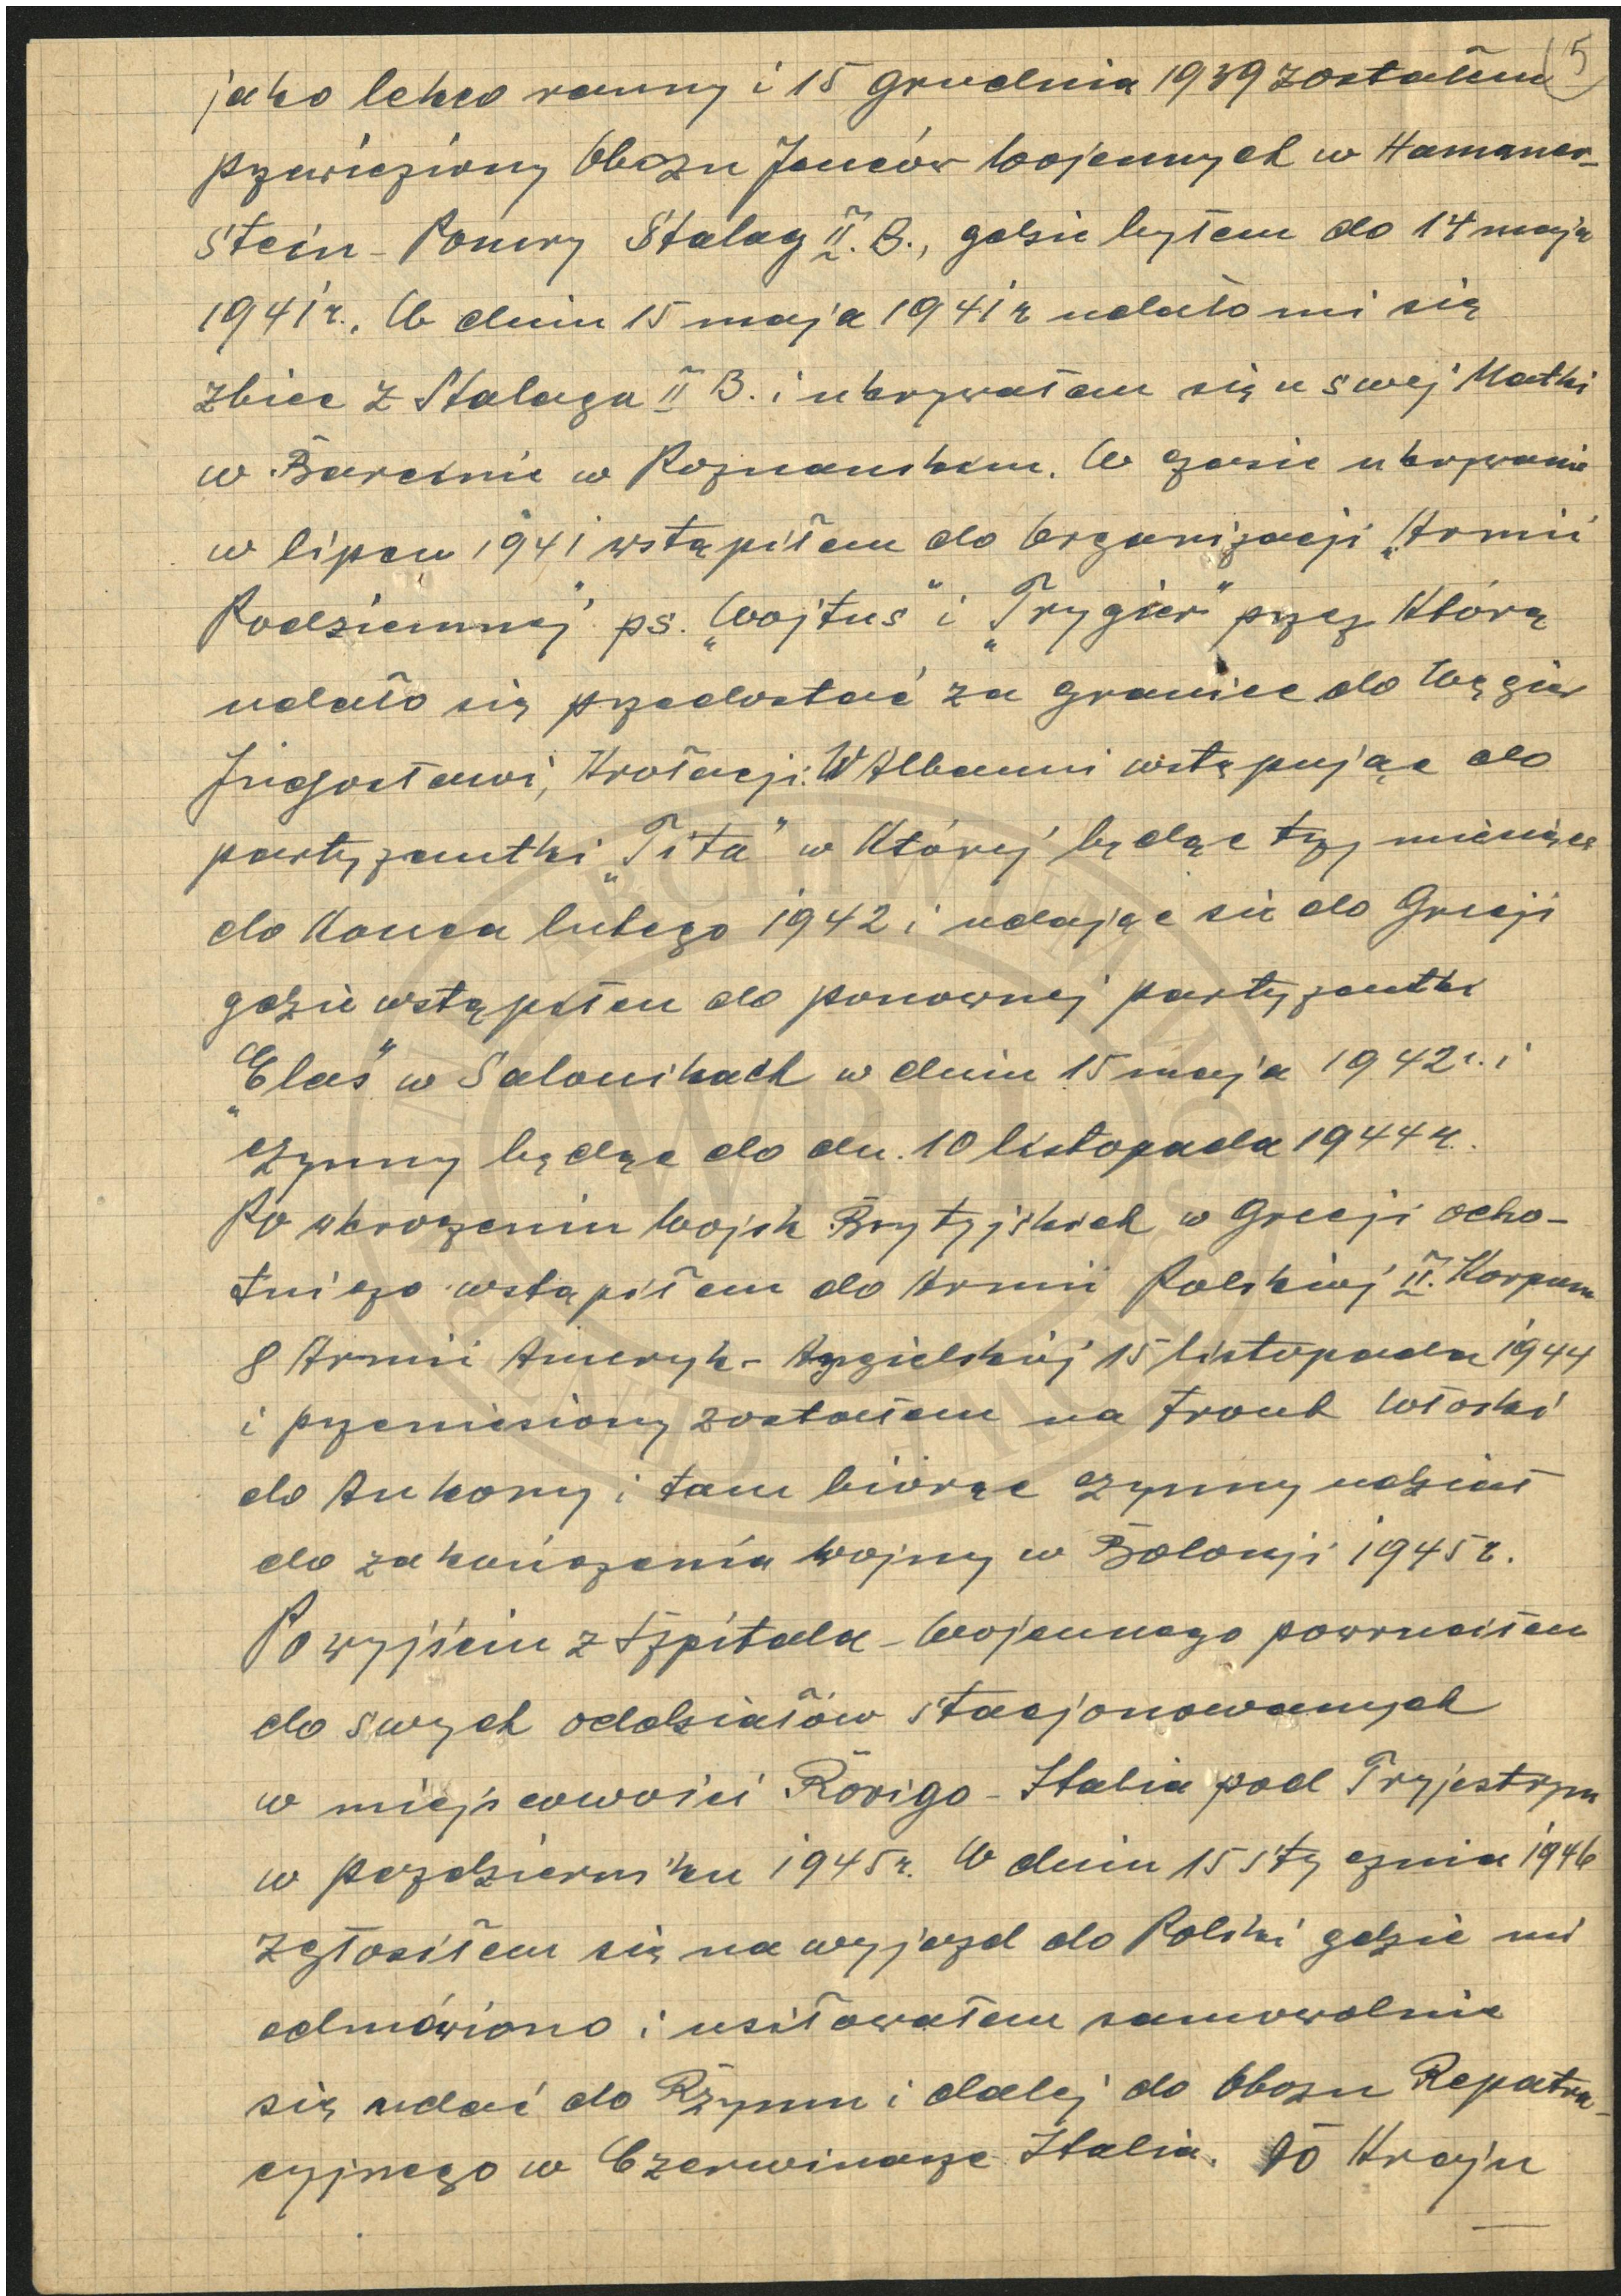 5
jako lekko ranny i 15 grudnia 1939 zostałem
przewieziony Obozu Jeńców Wojennych w Hamaner-
stein - Pomery Stalag II. B., gdzie byłem do 14 maja
1941 r., W dniu 15 maja 1941 r udało mi się
zbiec z Stalagu II B. i ukrywałem się u swej Matki
w Barcinie w Poznańskim. W czasie ukrywania
w lipcu 1941 wstąpiłem do Organizacji „Armii
Podziemnej" ps. „Wojtuś" i „Trygier" przez Którą
udało się przedostać za granice do Węgier
Jugosławi, Krołacji. W Albanni wstępując do
partyzantki „Tita" w Której będąc trzy miesiące
do Końca lutego 1942 i udając sie do Grecji
gdzie wstąpiłem do ponownej partyzantki
„Elas" w Salonikach w dniu 15 maja 1942 r. i
czynny będąc do dn. 10 listopada 1944 r.
Po wkroczeniu Wojsk Brytyjskich w Grecji ocho-
tniczo wstąpiłem do Armii Polskiej II. Korpusu
8 Armii Ameryk - Angielskiej 15 listopada 1944
i przeniesiony zostałem na front Włoski
do Ankony i tam biorąc czynny udział
do zakończenia Wojny w Bolonji 1945 r.
Po wyjściu z Szpitala - Wojennego powruciłem
do swych oddziałów stacjonowanych
w miejscowości Rovigo - Italia pod Tryjestrzm
w pazdzierniku 1945 r. W dniu 15 stycznia 1946
zgłosiłem się na wyjazd do Polski gdzie mi
odmówiono i usiłowałem samowolnie
się udać do Rzymu i dalej do Obozu Repatra-
cyjnego w Czerwinarze Italia. Do Kraju
ARCHIWUM
WBH